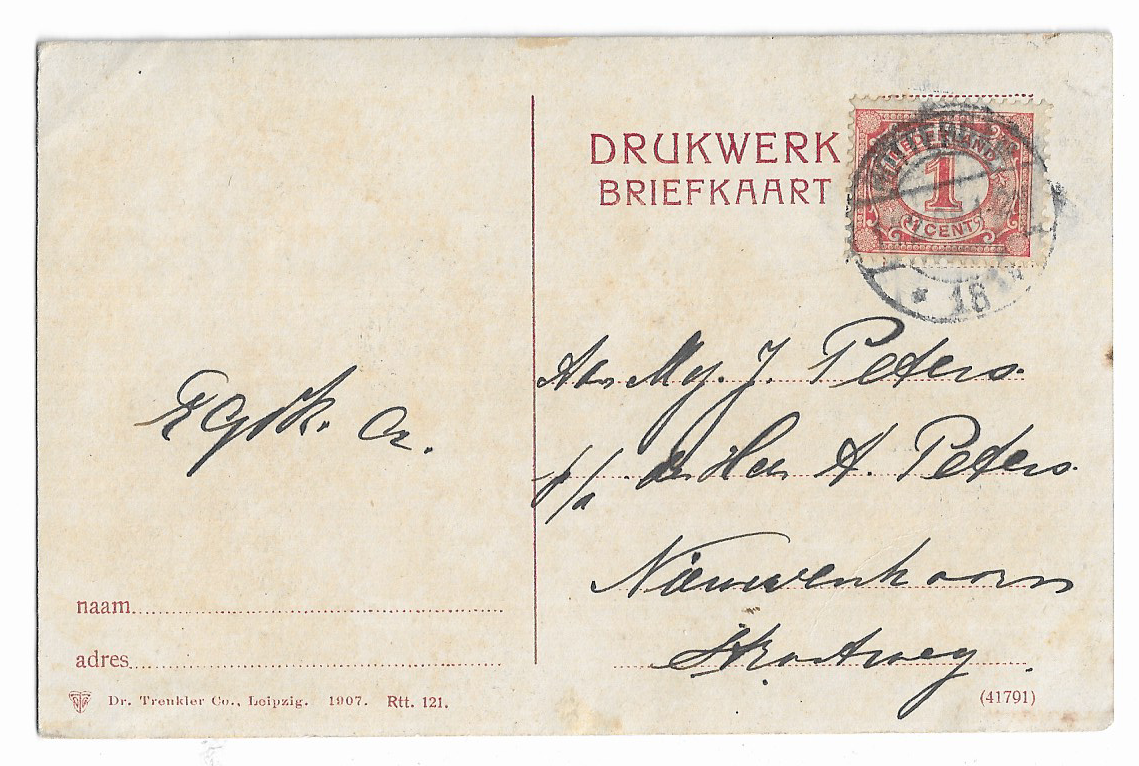 DRUKWERK
BRIEFKAART
NEDERLAND
1
1 CENT
18
Aan Mej. J. Peters.
p/a den Heer A. Peters.
Nieuwenhoorn
Straatweg.
naam
adres
Dr. Trenkler Co., Leipzig. 1907. Rtt. 121.
(41791)